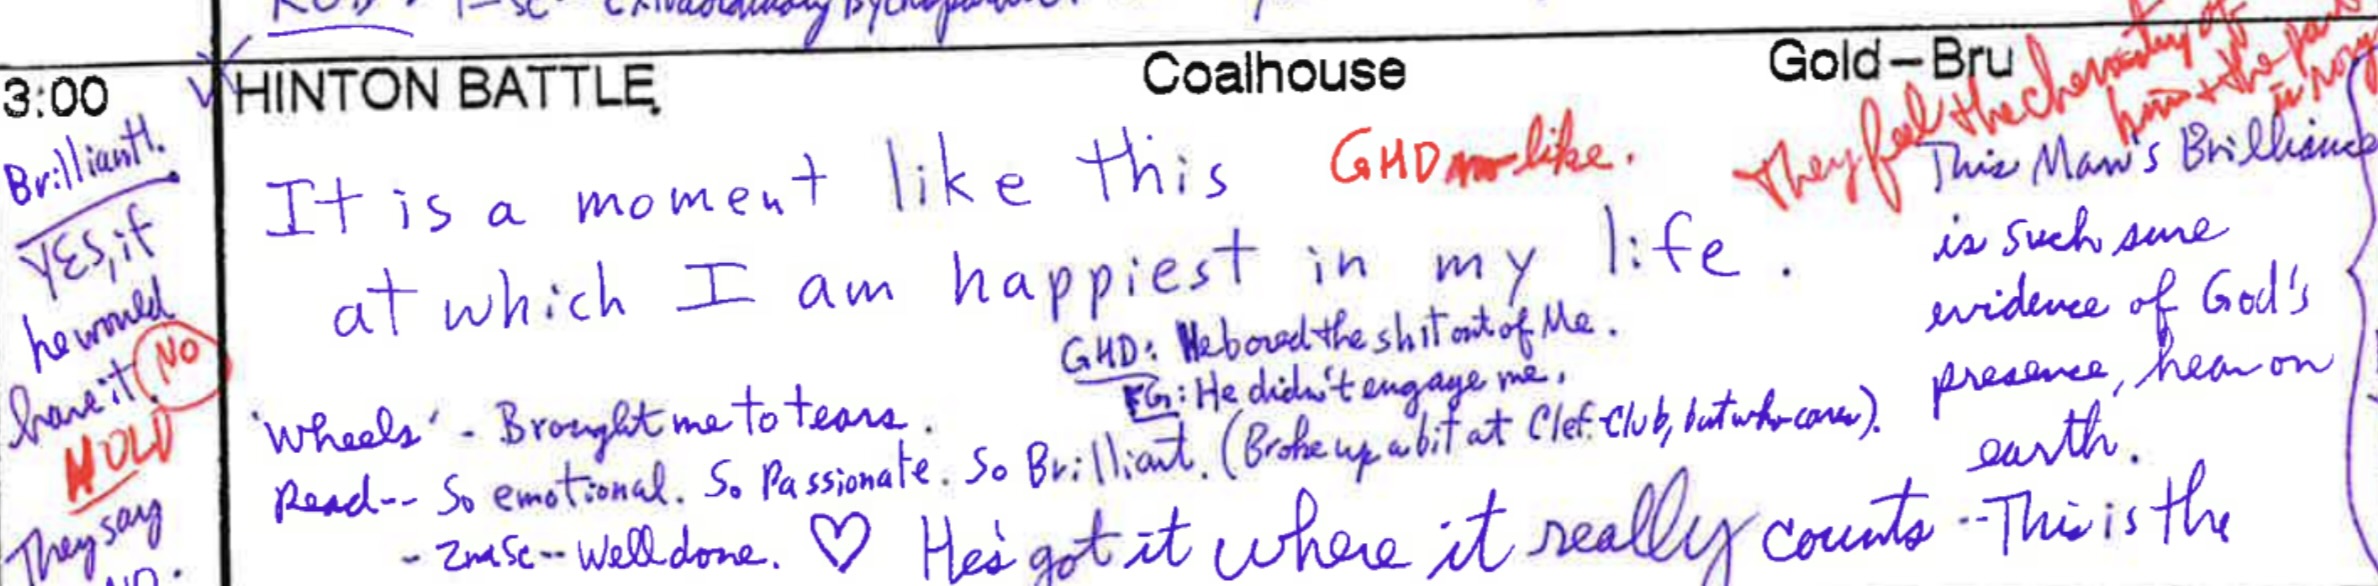 extraordinary
3:00 HINTON BATTLE Coalhouse Gold-Bru
They feel the chemistry of
him + the part
is wrong
Brilliant!.
YES, it
he would
have it. NO
HOLD
They say
NO.
It is a moment like this GHD no like.
at which I am happiest in my life.
GHD: He bored the shit out of Me.
FG: He didn't engage me.
'Wheels' - Brought me to tears.
Read-- So emotional. So Passionate. So Brilliant. (Broke up a bit at Clef-Club, but who cares).
- 2nd Sc -- Well done. ♡ He's got it where it really counts -- This is the
This Man's Brilliance
is such sure
evidence of God's
presence, hear on
earth.